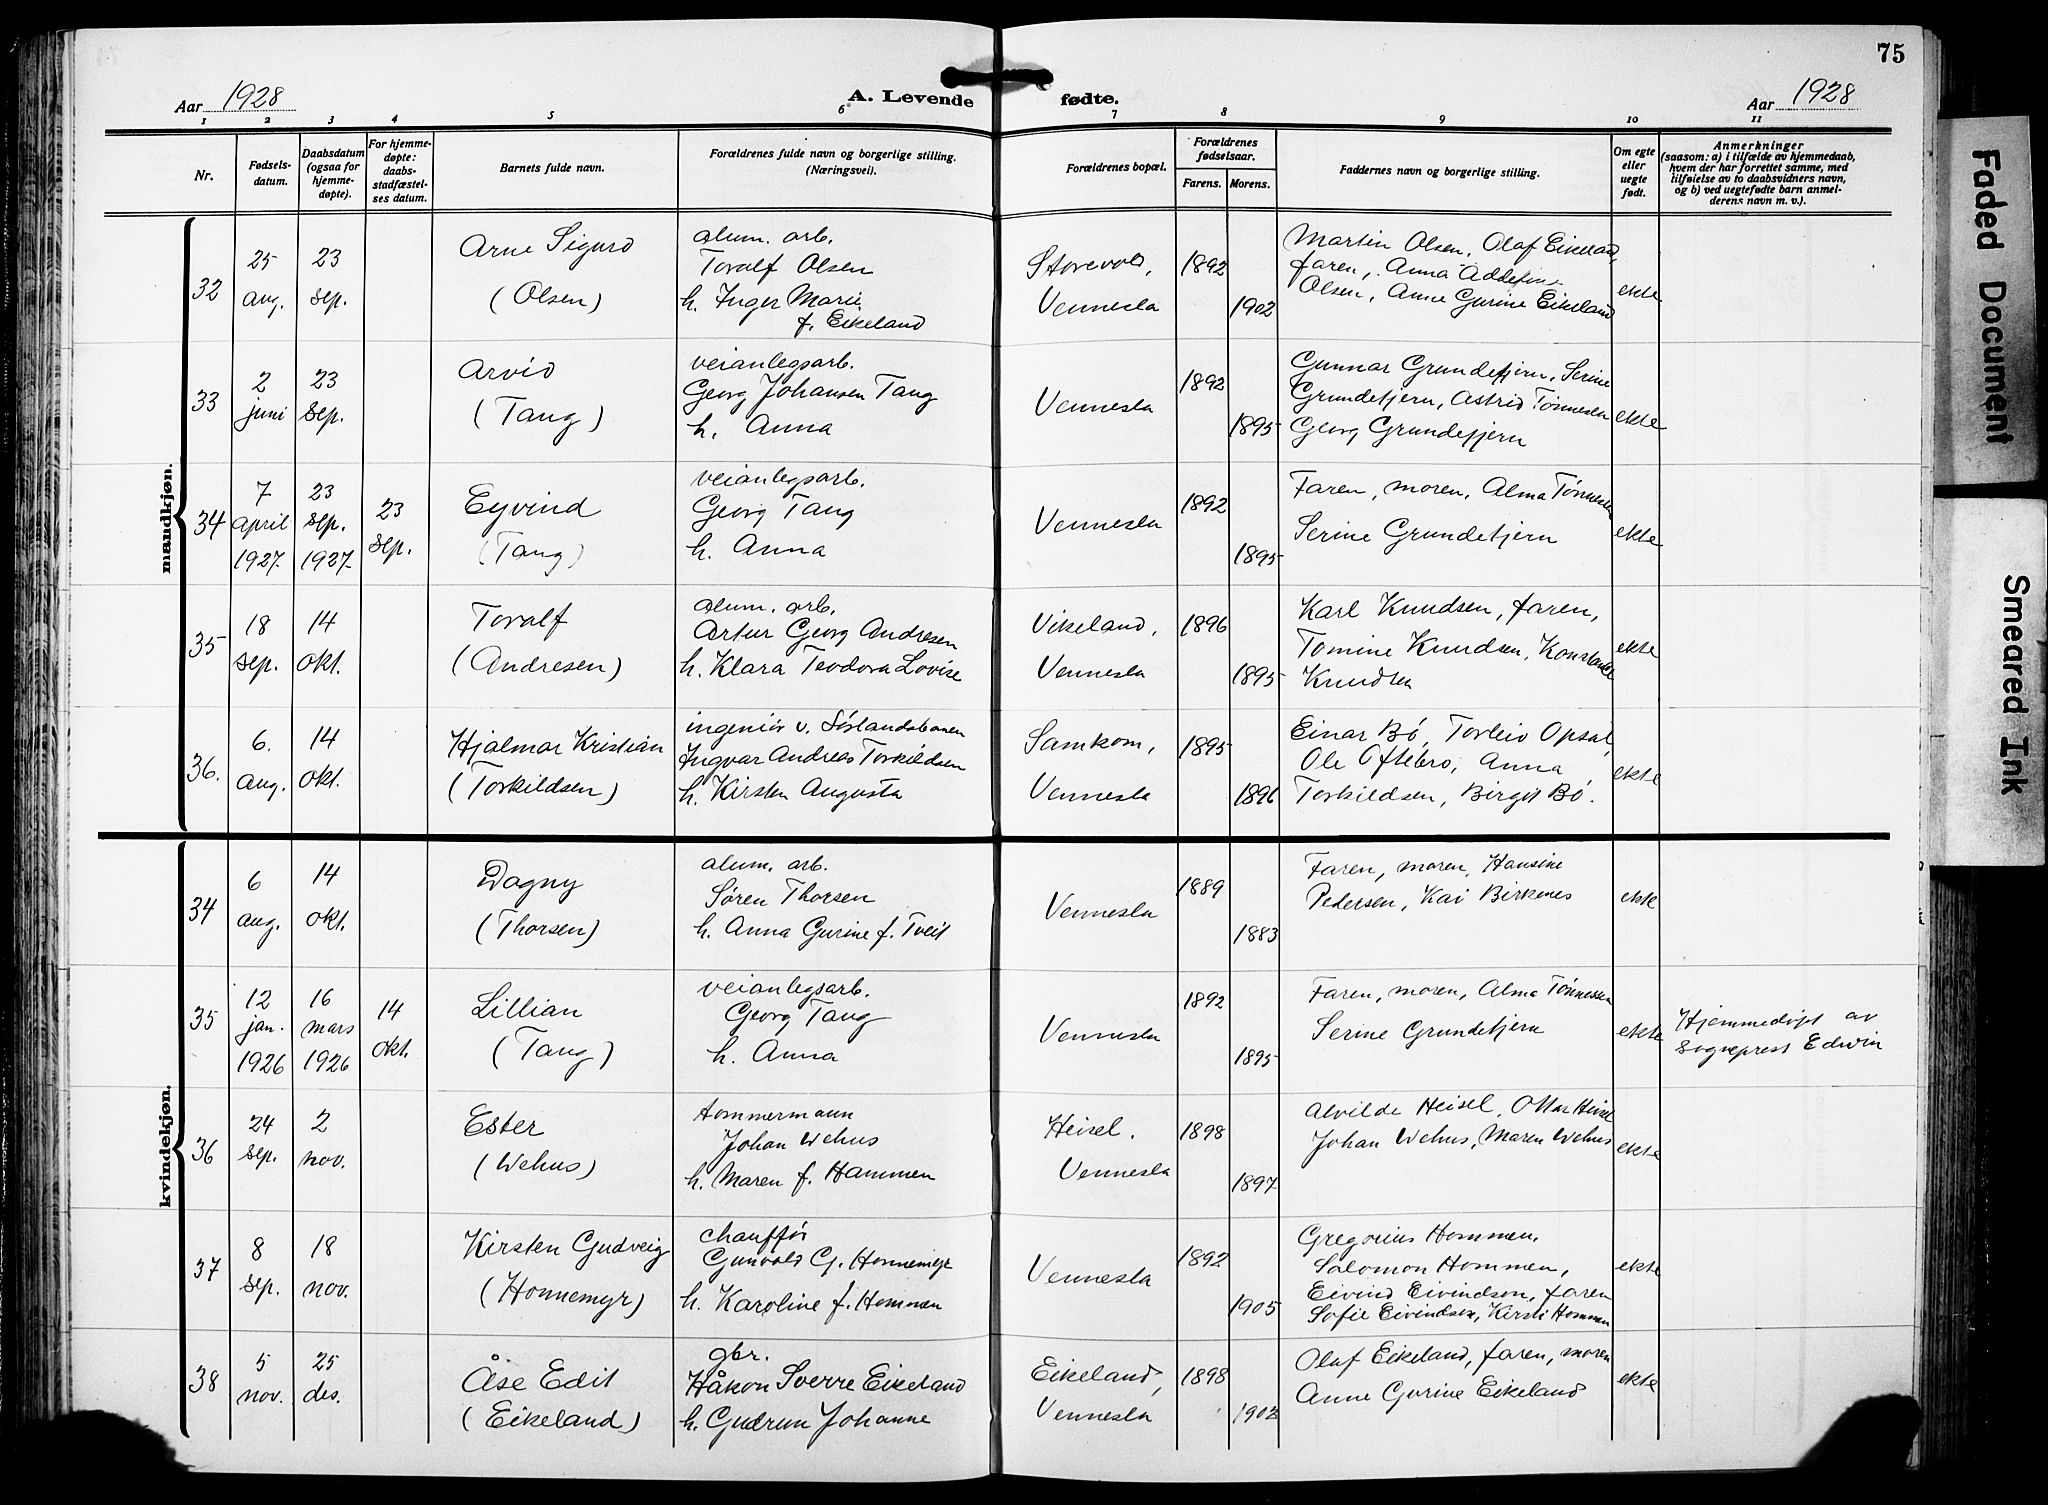 75
Aar 1928
A. Levende fødte.
Aar 1928
1 2 3 4 5 6 7 8 9 10 11
Nr.
Fødsels-
datum.
Daabsdatum
(ogsaa for
hjemme-
døpte).
For hjemme-
døpte:
daabs-
stadfæstel-
ses datum.
Barnets fulde navn.
Forældrenes fulde navn og borgerlige stilling.
(Næringsvei).
Forældrenes bopæl.
Forældrenes
fødselsaar.
Farens. Morens.
Faddernes navn og borgerlige stilling.
Om egte
eller
uegte
født.
Anmerkninger
(saasom: a) i tilfælde av hjemmedaab,
hvem der har forrettet samme, med
tilføielse av to daabsvidners navn,
og b) ved uegtefødte barn anmel-
derens navn m. v.).
mandkjøn.
32
25
aug.
23
sep.
Arne Sigurd
(Olsen)
alum. arb.
Toralf Olsen
h. Inger Marie
f. Eikeland
Storevold,
Vennesla
1892
1902
Martin Olsen, Olaf Eikeland,
faren, Anna Addefine
Olsen, Anne Gurine Eikeland
ekte
33
2
juni
23
sep.
Arvid
(Tang)
veianlegsarb.
Georg Johansen Tang
h. Anna
Vennesla
1892
1895
Gunnar Grundetjern, Serine
Grundetjern, Astrid Tønnesen
Georg Grundetjern
ekte
34
7
april
1927
23
sep.
1927
23
sep.
Eyvind
(Tang)
veianlegsarb.
Georg Tang
h. Anna
Vennesla
1892
1895
Faren, moren, Alma Tønnesen
Serine Grundetjern
ekte
35
18
sep.
14
okt.
Toralf
(Andresen)
alum. arb.
Artur Georg Andresen
h. Klara Teodora Lovise
Vikeland,
Vennesla
1896
1895
Karl Knudsen, faren,
Tomine Knudsen, Konstanse
Knudsen
ekte
36.
6.
aug.
14
okt.
Hjalmar Kristian
(Torkildsen)
ingeniør v. Sørlandsbanen
Ingvar Andreas Torkildsen
h. Kirsten Augusta
Samkom,
Vennesla
1895
1896
Einar Bø, Torleiv Opsal,
Ole Oftebro, Anna
Torkildsen, Birgit Bø.
ekte
kvindekjøn.
34
6
aug.
14
okt.
Dagny
(Thorsen)
alum. arb.
Søren Thorsen
h. Anna Gurine f. Tveit
Vennesla
1889
1883
Faren, moren, Hansine
Pedersen, Kai Birkenes
ekte
35
12
jan.
1926
16
mars
1926
14
okt.
Lillian
(Tang)
veianlegsarb.
Georg Tang
h. Anna
Vennesla
1892
1895
Faren, moren, Alma Tønnessen
Serine Grundetjern
ekte
Hjemmedøpt av
sogneprest Edwin
36
24
sep.
2
nov.
Ester
(Wehus)
tommermann
Johan Wehus
h. Maren f. Hammen
Heisel.
Vennesla
1898
1897
Alvilde Heisel, Ottar Heisel
Johan Wehus, Maren Wehus
ekte
37
8
sep.
18
nov.
Kirsten Gudveig
(Honnemyr)
chauffør
Gunvald G. Honnemyr
h. Karoline f. Hommen
Vennesla
1892
1905
Gregorius Hommen,
Salomon Hommen,
Eivind Eivindson, faren
Sofie Eivindsen, Kirsti Hommen
ekte
38
5
nov.
25
des.
Åse Edit
(Eikeland)
gbr.
Håkon Sverre Eikeland
h. Gudrun Johanne
Eikeland,
Vennesla
1898
1902
Olaf Eikeland, faren, moren
Anne Gurine Eikeland
ekte
Faded Document
Smeared Ink